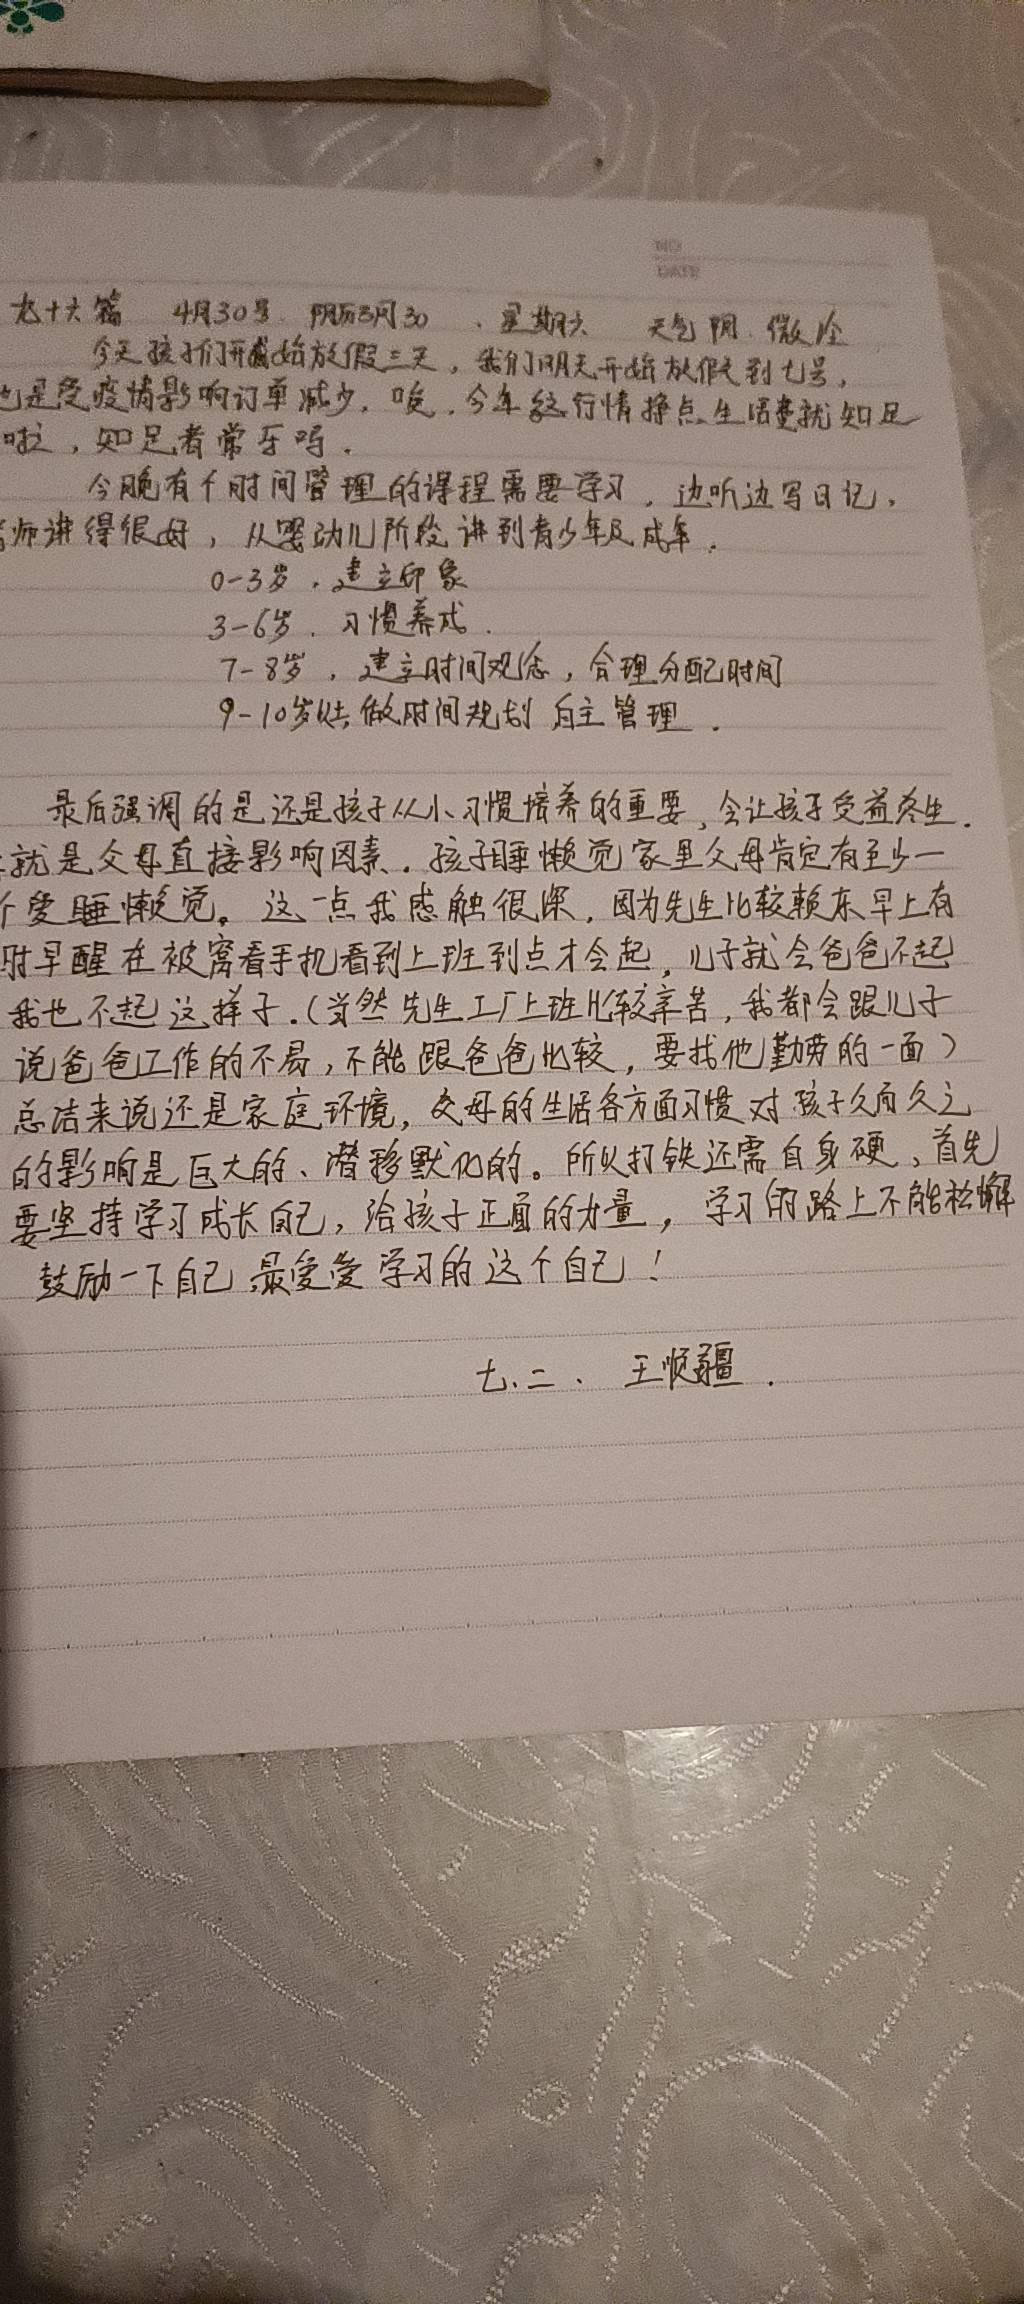 NO
DATE
九十六篇 4月30号 阴历3月30 、星期六 天气阴.微冷
今天孩子们开始放假三天，我们明天开始放假到七号，
也是受疫情影响订单减少.唉.今年行情挣点生活费就知足
啦，知足者常乐吗.
今晚有个时间管理的课程需要学习，边听边写日记，
老师讲得很好，从婴幼儿阶段讲到青少年及成年.
0-3岁.建立印象
3-6岁.习惯养成.
7-8岁，建立时间观念，合理分配时间
9-10岁以上,做时间规划 自主管理.
最后强调的是还是孩子从小习惯培养的重要,会让孩子受益终生.
就是父母直接影响因素.孩子睡懒觉家里父母肯定有至少一
个爱睡懒觉。这一点我感触很深,因为先生比较赖床早上有
时早醒在被窝看手机看到上班到点才会起,儿子就会爸爸不起
我也不起这样子.(当然先生工厂上班比较辛苦,我都会跟儿子
说爸爸工作的不易,不能跟爸爸比较,要找他勤劳的一面)
总结来说还是家庭环境,父母的生活各方面习惯对孩子久而久之
的影响是巨大的、潜移默化的。所以打铁还需自身硬、首先
要坚持学习成长自己,给孩子正面的力量,学习的路上不能松懈
鼓励一下自己,最爱爱学习的这个自己!
七.二、王顺疆.